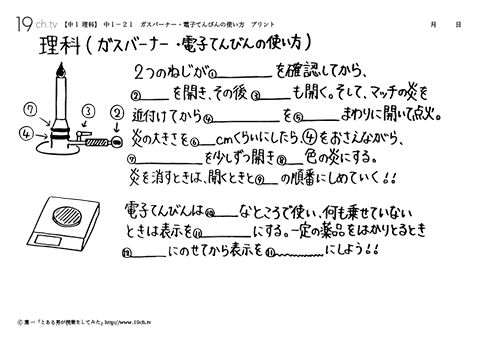 19ch.tv 【中1 理科】 中1-21 ガスバーナー・電子てんびんの使い方 プリント 月 日
理科(ガスバーナー・電子てんびんの使い方)
2つのねじが①______を確認してから、
②____を開き、その後③____も開く。そして、マッチの炎を
近付けてから④________を⑤____まわりに開いて点火。
炎の大きさを⑥__cmくらいにしたら、④をおさえながら、
⑦________を少しずつ開き⑧__色の炎にする。
炎を消すときは、開くときと⑨__の順番にしめていく!!
⑦
④
③
②
電子てんびんは⑩____なところで使い、何も乗せていない
ときは表示を⑪______にする。一定の薬品をはかりとるとき
⑫____にのせてから表示を⑪______にしよう!!
©葉一「とある男が授業をしてみた」http://www.19ch.tv